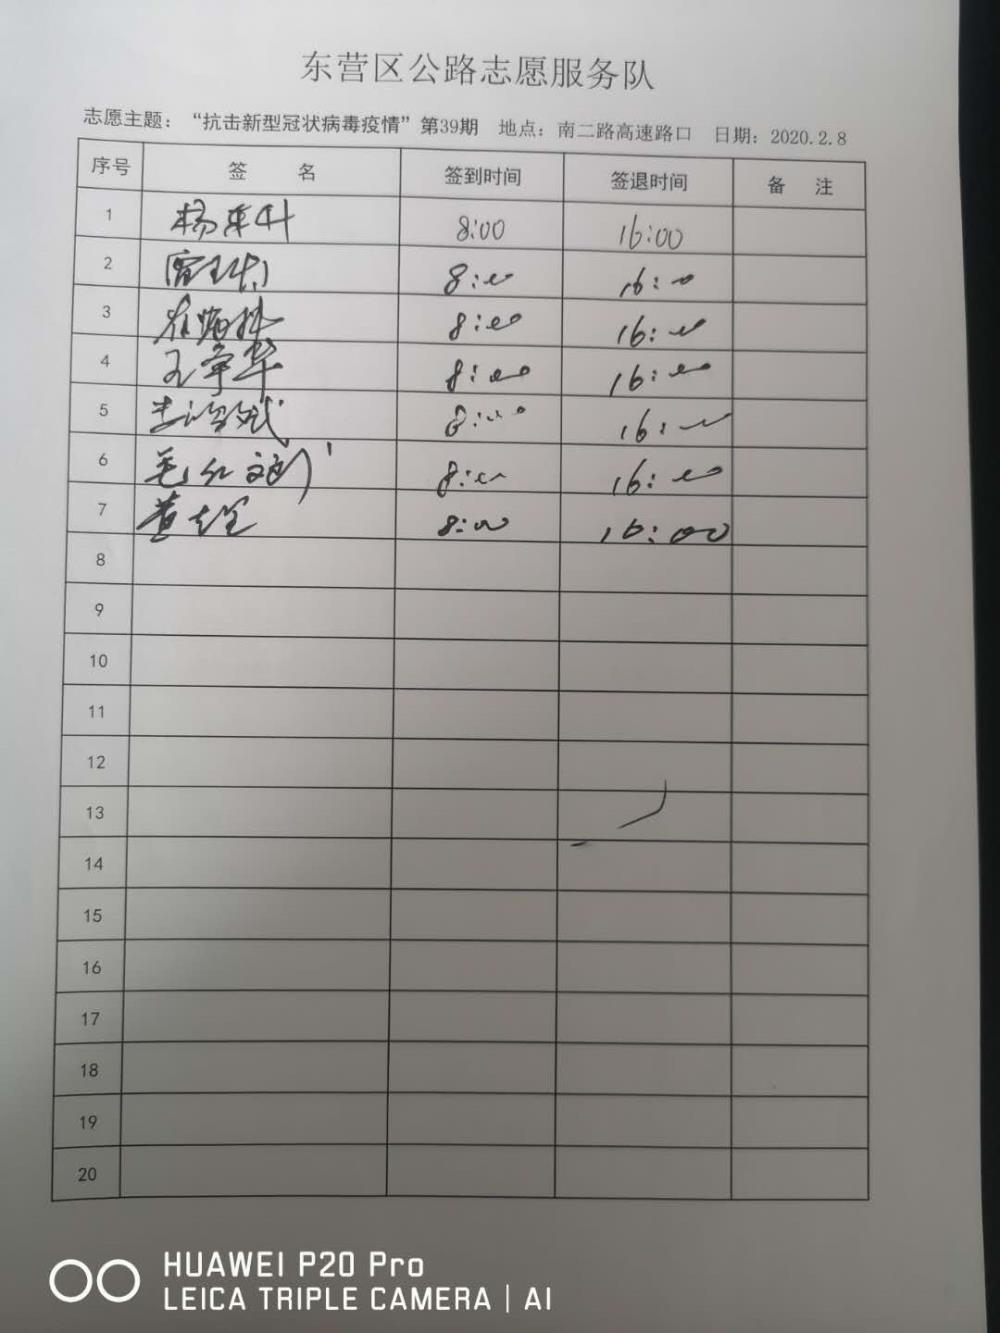 东营区公路志愿服务队
志愿主题：“抗击新型冠状病毒疫情”第39期 地点：南二路高速路口 日期：2020.2.8
序号 签 名 签到时间 签退时间 备 注
1 杨 8:00 16:00
2 8:00 16:00
3 8:00 16:00
4 王军华 8:00 16:00
5 8:00 16:00
6 毛红 8:00 16:00
7 黄 8:00 16:00
8
9
10
11
12
13
14
15
16
17
18
19
20
HUAWEI P20 Pro
LEICA TRIPLE CAMERA | AI